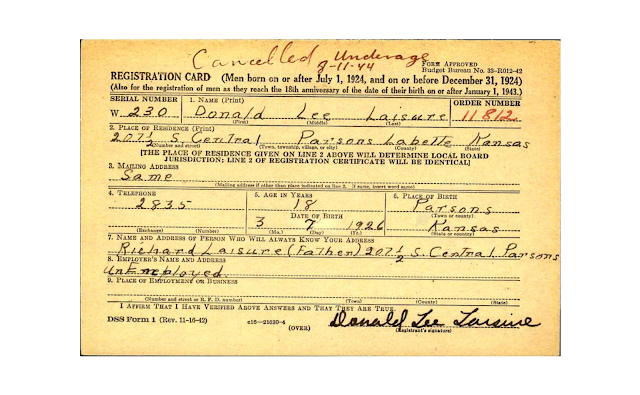 Cancelled Underage
9-11-44
FORM APPROVED
Budget Bureau No. 33-R012-42
REGISTRATION CARD (Men born on or after July 1, 1924, and on or before December 31, 1924)
(Also for the registration of men as they reach the 18th anniversary of the date of their birth on or after January 1, 1943.)
SERIAL NUMBER 1. NAME (Print) ORDER NUMBER
W 230 Donald Lee Laisure 11812
(First) (Middle) (Last)
2. PLACE OF RESIDENCE (Print)
207½ S. Central Parsons Labette Kansas
(Number and street) (Town, township, village, or city) (County) (State)
[THE PLACE OF RESIDENCE GIVEN ON LINE 2 ABOVE WILL DETERMINE LOCAL BOARD
JURISDICTION; LINE 2 OF REGISTRATION CERTIFICATE WILL BE IDENTICAL]
3. MAILING ADDRESS
Same
(Mailing address if other than place indicated on line 2. If same, insert word same)
4. TELEPHONE 5. AGE IN YEARS 6. PLACE OF BIRTH
2835 18 Parsons
DATE OF BIRTH (Town or county)
3 7 1926 Kansas
(Exchange) (Number) (Mo.) (Day) (Yr.) (State or country)
7. NAME AND ADDRESS OF PERSON WHO WILL ALWAYS KNOW YOUR ADDRESS
Richard Laisure (Father) 207½ S. Central Parsons
8. EMPLOYER'S NAME AND ADDRESS
UnEmployed
9. PLACE OF EMPLOYMENT OR BUSINESS
(Number and street or R. F. D. number) (Town) (County) (State)
I AFFIRM THAT I HAVE VERIFIED ABOVE ANSWERS AND THAT THEY ARE TRUE.
DSS Form 1 (Rev. 11-16-42) (OVER) Donald Lee Laisure
(Registrant's signature)